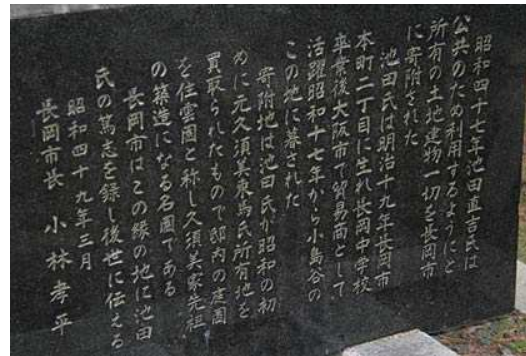 昭和四十七年池田直吉氏は
公共のため利用するようにと
所有の土地建物一切を長岡市
に寄附された
池田氏は明治十九年長岡市
本町二丁目に生れ長岡中学校
卒業後大阪市で貿易商として
活躍昭和十七年から小島谷の
この地に暮された
寄附地は池田氏が昭和の初
めに元久須美東馬氏所有地を
買取られたもので邸内の庭園
を住雲園と称し久須美家先祖
の築造になる名園である
長岡市はこの縁の地に池田
氏の篤志を録し後世に伝える
昭和四十九年三月
長岡市長 小林孝平